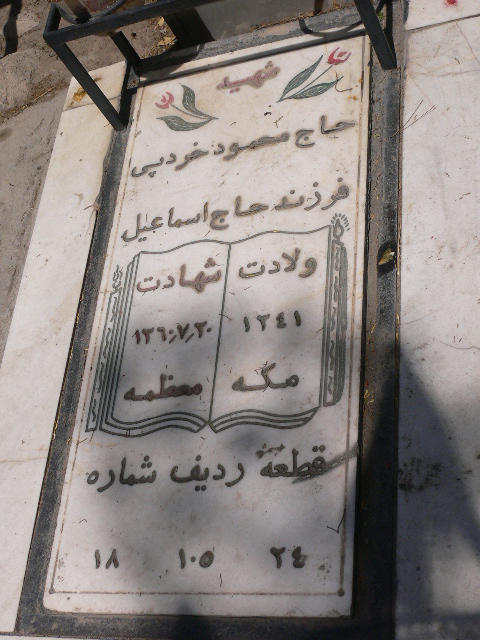 شهید
حاج محمود خردپی
فرزند حاج اسماعیل
ولادت شهادت
۱۲٤۱ ۱۳٦۰٫۷٫۲۰
مکه معظمه
قطعه ردیف شماره
۲٤ ۱۰۵ ۱۸